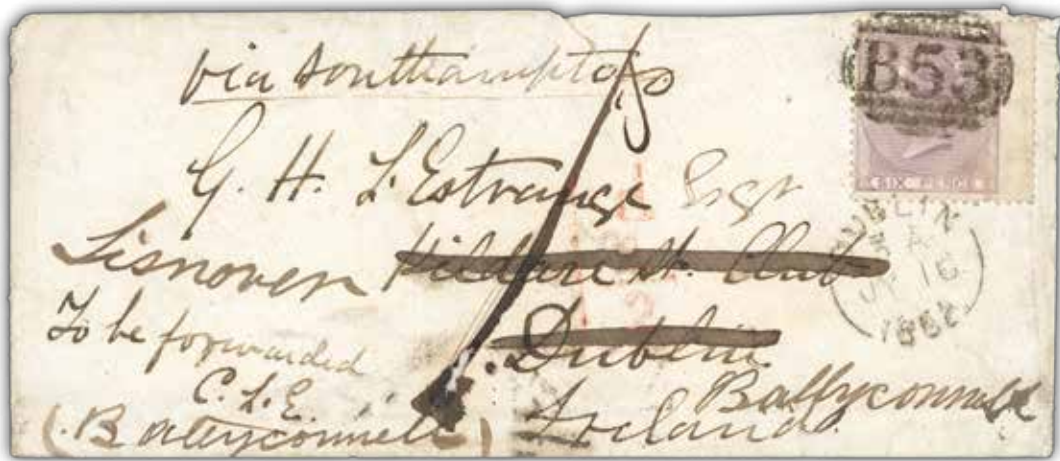 via Southampton
B53
SIX PENCE
G. H. L'Estrange Esqr
Lisnover Kildare St. Club
DUBLIN
A
16
To be forwarded
Dublin
C. L. E.
Ballyconnell
(Ballyconnell)
Ireland